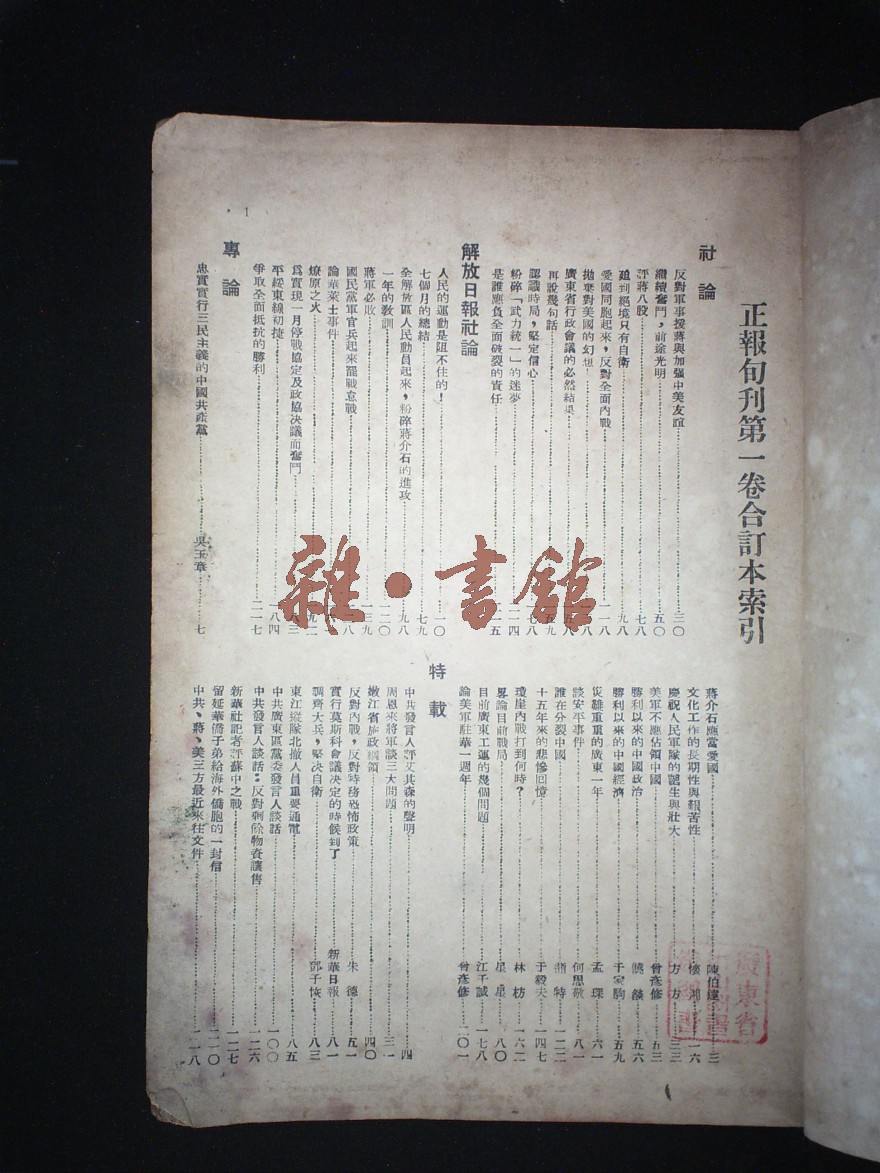 正報旬刊第一卷合訂本索引
社論
反對軍事援蔣與加强中美友誼……三〇
繼續奮鬥，前途光明……五〇
評蔣八股……七八
逼到絕境只有自衛……九八
愛國同胞起來，反對全面內戰……一一八
拋棄對美國的幻想
廣東省行政會議的必然結果
再說幾句話
認識時局，堅定信心
粉碎「武力統一」的迷夢……二一四
是誰應負全面破裂的責任
解放日報社論
人民的運動是阻不住的！……一〇
七個月的總結……七九
全解放區人民動員起來，粉碎蔣介石的進攻……九八
一年的教訓……一二〇
蔣軍必敗……一三九
國民黨軍官兵起來罷戰怠戰
論華萊士事件
燎原之火
爲實現一月停戰協定及政協決議而奮鬥
平綏東線初捷……八四
爭取全面抵抗的勝利……二一七
專論
忠實實行三民主義的中國共產黨……吳玉章……七
蔣介石應當愛國……陳伯達……三
文化工作的長期性與艱苦性……一六
慶祝人民軍隊的誕生與壯大……方方……三三
美軍不應佔領中國……曾彥修……五三
勝利以來的中國政治……五六
勝利以來的中國經濟……千家駒……五九
災難重重的廣東一年……孟琛……六一
談安平事件……何思敬……八一
誰在分裂中國……特……一二二
十五年來的悲慘回憶……于毅夫……一四七
瓊崖內戰打到何時？……林枋……一六二
畧論目前戰局……星星……一八〇
目前廣東工運的幾個問題……江千誠……一七八
論美軍駐華一週年……曾彥修……二〇一
特載
中共發言人評艾其森的聲明……四
周恩來將軍談三大問題……三一
嫩江省施政綱領……四〇
反對內戰，反對特務恐怖政策……朱德……五一
實行莫斯科會議決定的時候到了……新華日報……八一
調齊大兵，堅決自衛……鄧子恢……八三
東江縱隊北撤人員重要通電……八五
中共廣東區黨委發言人談話……一〇〇
中共發言人談話：反對剩餘物資讓售……一二六
新華社記者評蘇中之戰……一二七
留延華僑子弟給海外僑胞的一封信……二一〇
中共、蔣、美三方最近來往文件……二一八
1
雜·書館
廣東省